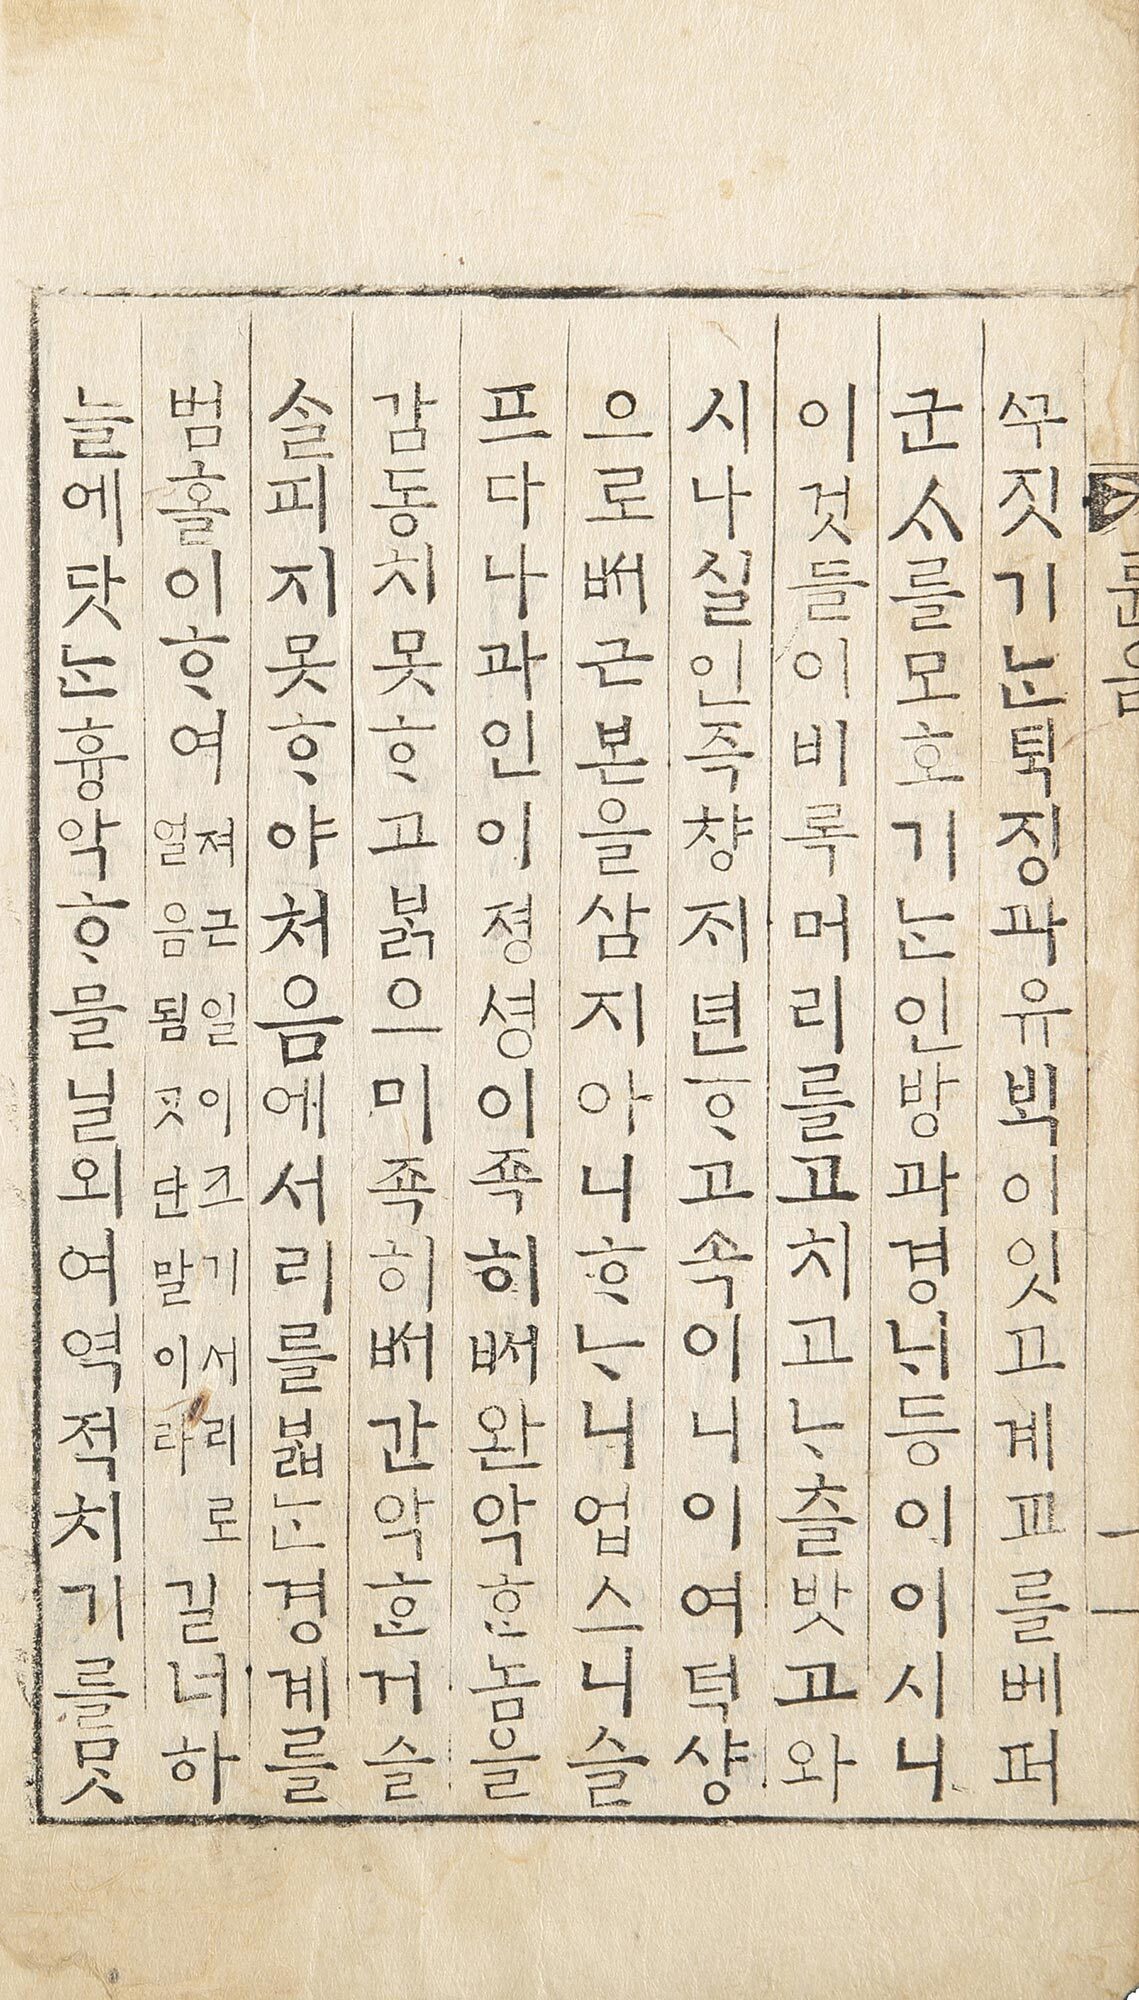 ᄭᅮ짓기ᄂᆞᆫᄐᆡᆨ징과유ᄇᆡᆨ이잇고계교를베퍼
군ᄉᆞ를모호기ᄂᆞᆫ인방과경ᄂᆡ등이이시니
이것들이비록머리를고치고ᄂᆞ츨밧고와
시나실인즉챵ᄌᆡ련ᄒᆞ고속이니이여ᄐᆡᆨ샹
으로ᄡᅥ근본을삼지아니ᄒᆞᄂᆞ니업스니슬
프다나과인이졍셩이죡히ᄡᅥ완악ᄒᆞᆫ놈을
감동치못ᄒᆞ고ᄇᆞᆰ으미죡히ᄡᅥ간악ᄒᆞᆫ거슬
ᄉᆞᆯ피지못ᄒᆞ야처음에서리를ᄇᆞᆲᄂᆞᆫ경계를
범홀이ᄒᆞ여져근일이크기서리로열음됨ᄀᆞᆺ단말이라길너하
늘에ᄃᆞᆺᄂᆞᆫ흉악ᄒᆞ믈닐외여역적치기를못